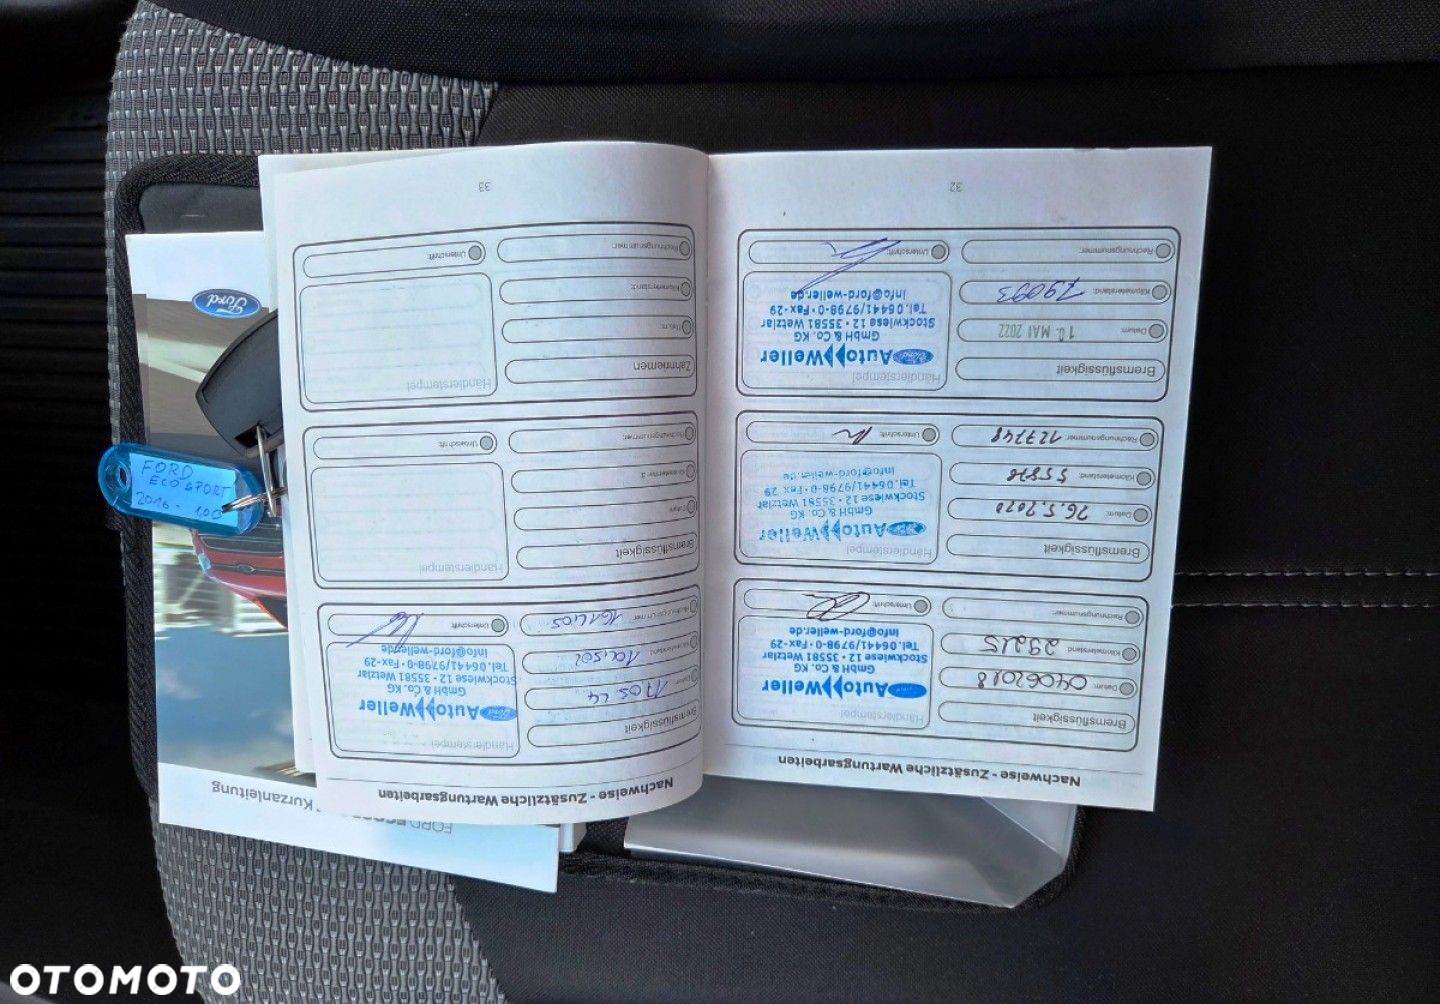 Nachweise - Zusätzliche Wartungsarbeiten
Bremsflüssigkeit
Datum: 04062018
Kilometerstand: 29215
Rechnungsnummer:
Händlerstempel
Ford Auto Weller
GmbH & Co. KG
Stockwiese 12 · 35581 Wetzlar
Tel. 06441/9798-0 · Fax -29
info@ford-weller.de
Unterschrift:
Bremsflüssigkeit
Datum: 26.5.2020
Kilometerstand: 55878
Rechnungsnummer: 127748
Händlerstempel
Ford Auto Weller
GmbH & Co. KG
Stockwiese 12 · 35581 Wetzlar
Tel. 06441/9798-0 · Fax 29
info@ford-weller.de
Unterschrift:
Bremsflüssigkeit
Datum: 10. MAI 2022
Kilometerstand: 79093
Rechnungsnummer:
Händlerstempel
Ford Auto Weller
GmbH & Co. KG
Stockwiese 12 · 35581 Wetzlar
Tel. 06441/9798-0 · Fax -29
info@ford-weller.de
Unterschrift:
32
Nachweise - Zusätzliche Wartungsarbeiten
Bremsflüssigkeit
Datum: 1705 24
Kilometerstand:
Rechnungsnummer: 161405
Händlerstempel
Ford Auto Weller
GmbH & Co. KG
Stockwiese 12 · 35581 Wetzlar
Tel. 06441/9798-0 · Fax -29
info@ford-weller.de
Unterschrift:
Bremsflüssigkeit
Datum:
Rechnungsnummer:
Händlerstempel
Unterschrift:
Zahnriemen
Datum:
Kilometerstand:
Rechnungsnummer:
Händlerstempel
Unterschrift:
33
Ford
FORD
Kurzanleitung
FORD
ECOSPORT
2016 - 1,00
OTOMOTO